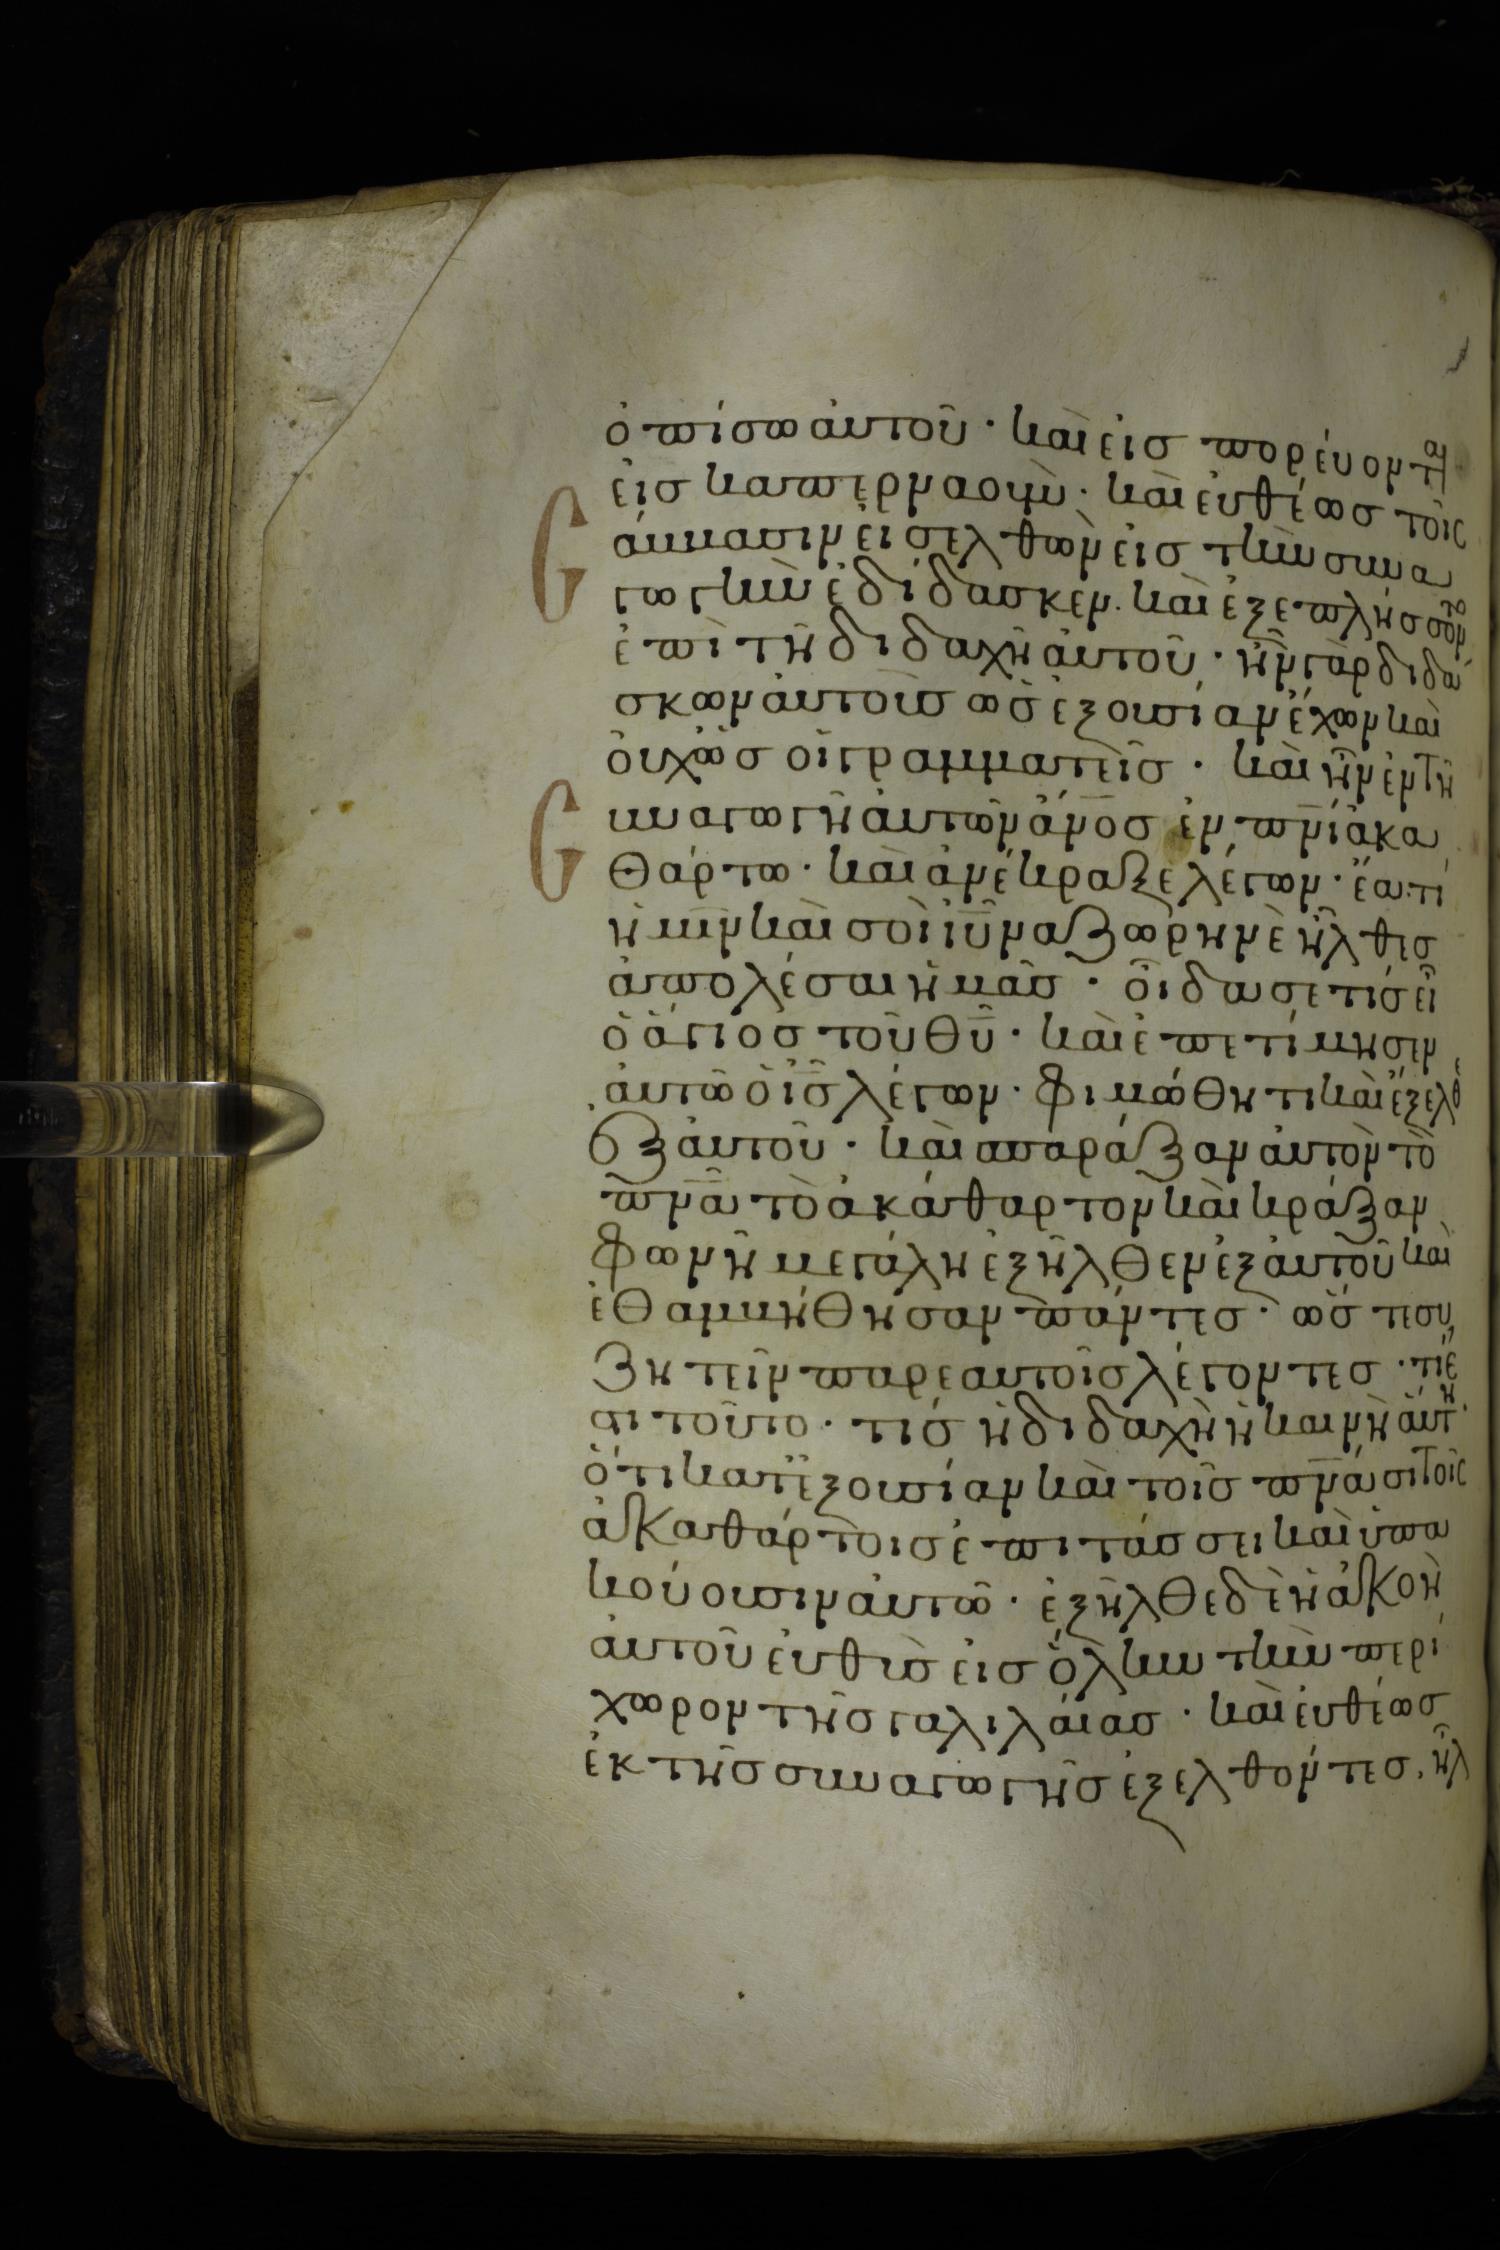 ὀπίσω ἀυτοῦ · καὶ εἰσπορέυονται
εἰς καπερναοὺμ · καὶ ἐυθέως τοῖς
Ϲάββασιν εἰσελθὼν εἰς τὴν συνα
γωγὴν ἐδίδασκεν · καὶ ἐξεπλήσσοντο
ἐπὶ τῆ διδαχῆ ἀυτοῦ · ἦν γὰρ διδά
σκων ἀυτοὺς ὡς ἐξουσίαν ἔχων καὶ
ὀυχ ὡς οἱ γραμματεῖς · καὶ ἦν ἐν τῆ
Ϲυναγωγῆ ἀυτῶν ἄνος ἐν πνὶ ἀκα
θάρτω · καὶ ἀνέκραξε λέγων · ἔα · τί
ἡμῖν καὶ σοὶ ιῦ ναζωρηνὲ ἦλθες
ἀπολέσαι ἡμᾶς · οἶδα σε τίς εἶ
ὁ ἅγιος τοῦ θῦ · καὶ ἐπετίμησεν
ἀυτῶ ὁ ις λέγων · φιμώθητι καὶ ἔξελθε
ἐξ ἀυτοῦ · καὶ σπαράξαν ἀυτὸν τὸ
πνᾶ τὸ ἀκάθαρτον καὶ κράξαν
φωνῆ μεγάλη ἐξῆλθεν ἐξ ἀυτοῦ καὶ
ἐθαμβήθησαν πάντες · ὥστε συ
ζητεῖν παρ εαυτοῖς λέγοντες · τί ἐ
στι τοῦτο · τίς ἡ διδαχὴ ἡ καινὴ ἅυτη ·
ὅτι κατ ἐξουσίαν καὶ τοῖς πνάσι τοῖς
ἀκαθάρτοις ἐπιτάσσει καὶ ὑπα
κούουσιν ἀυτῶ · ἐξῆλθε δὲ ἡ ἀκοὴ
ἀυτοῦ ἐυθὺς εἰς ὅλην τὴν περί
χωρον τῆς γαλιλάιας · καὶ ἐυθέως
ἐκ τῆς συναγωγῆς ἐξελθόντες · ἦλ